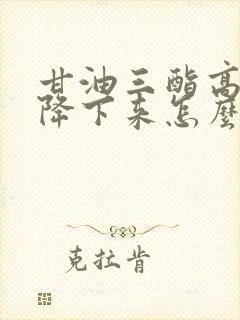 甘油三酯高
降下来怎麽
克拉肯